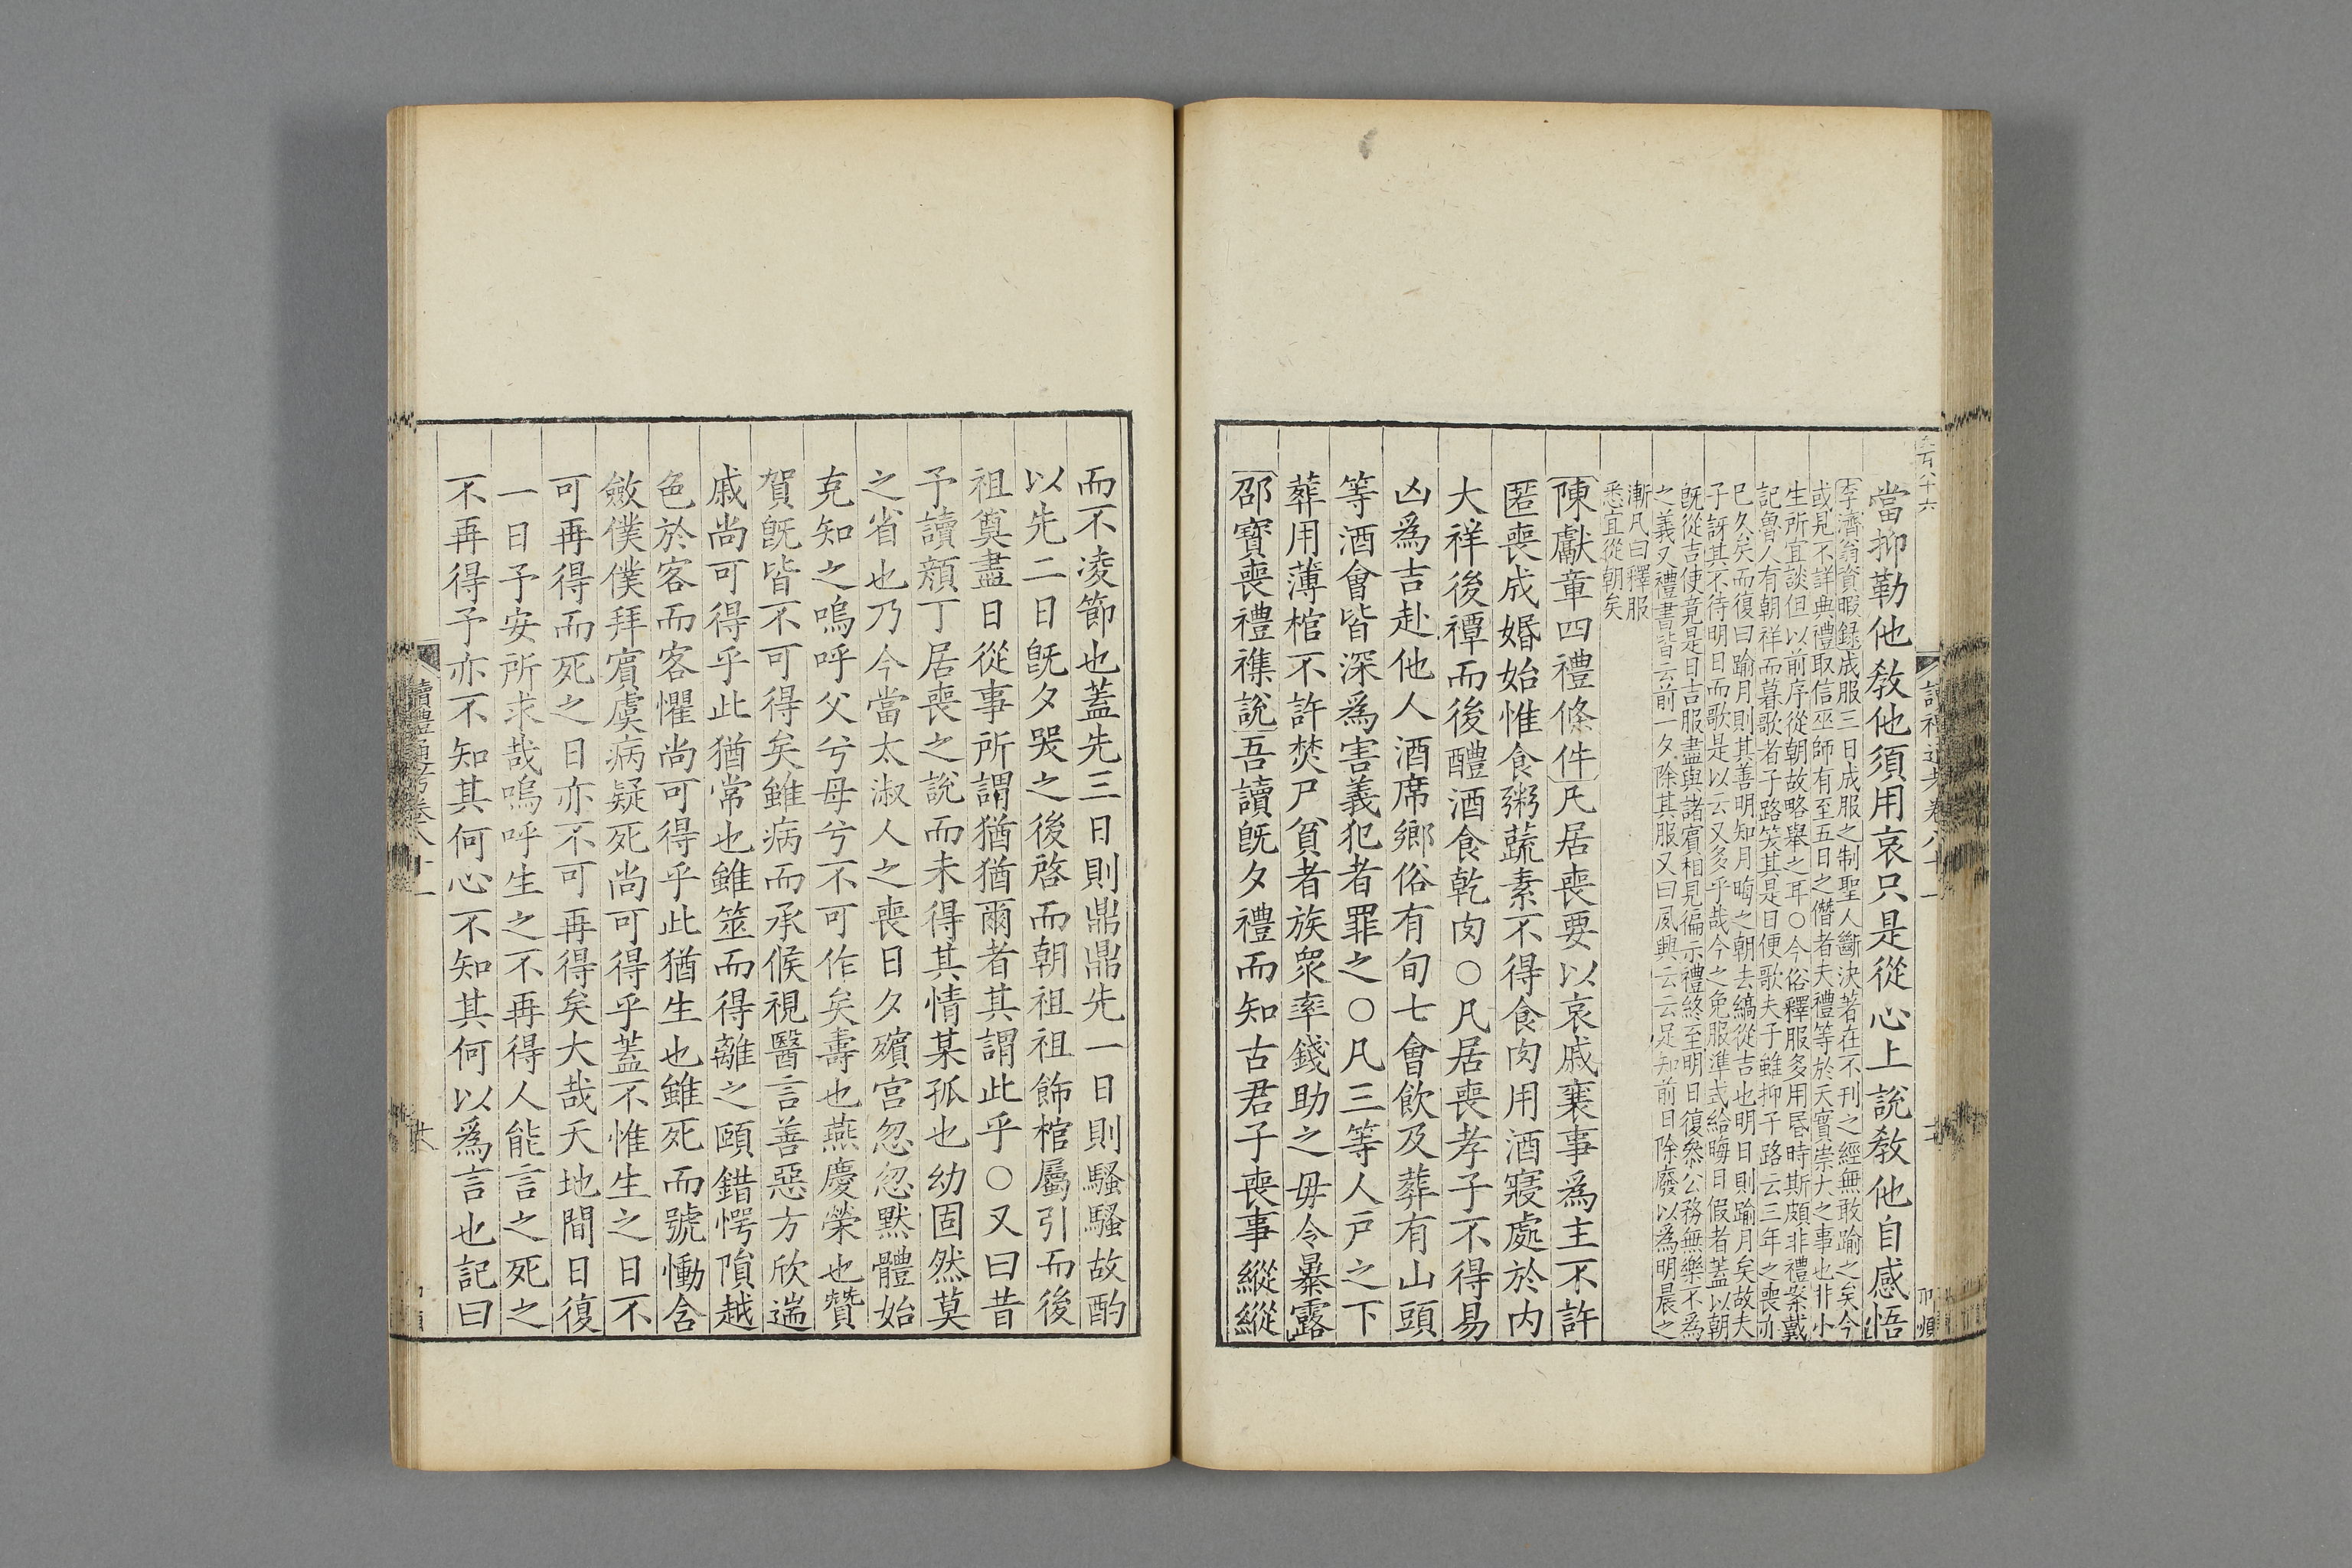 當抑勒他教他須用哀只是從心上說教他自感悟
李濟翁資暇錄成服三日成服之制聖人斷決著在不刊之經無敢踰之矣今
或見不詳典禮取信巫師有至五日之僭者夫禮等於天實崇大之事也非小
生所宜談但以前序從朝故略舉之耳○今俗釋服多用昏時斯頗非禮案戴
記魯人有朝祥而暮歌者子路笑其是日便歌夫子雖抑子路云三年之喪亦
已久矣而復曰踰月則其善明知月晦之朝去縞從吉也明日則踰月矣故夫
子訝其不待明日而歌是以云又多乎哉今之免服準式給晦日假者蓋以朝
旣從吉使竟是日吉服盡與諸賓相見徧示禮終至明日復叅公務無樂不為
之義又禮書皆云前一夕除其服又曰夙興云云足知前日除廢以為明晨之
漸凡曰釋服
悉宜從朝矣
陳獻章四禮條件凡居喪要以哀戚襄事為主不許
匿喪成婚始惟食粥蔬素不得食肉用酒寢處於内
大祥後禫而後醴酒食乾肉○凡居喪孝子不得易
凶爲吉赴他人酒席鄉俗有旬七會飲及葬有山頭
等酒會皆深爲害義犯者罪之○凡三等人戸之下
葬用薄棺不許焚尸貧者族衆率錢助之毋令暴露
邵寶喪禮襍說吾讀旣夕禮而知古君子喪事縱縱
而不凌節也蓋先三日則鼎鼎先一日則騷騷故酌
以先二日旣夕哭之後啓而朝祖祖飾棺屬引而後
祖奠盡日從事所謂猶猶爾者其謂此乎○又曰昔
予讀顔丁居喪之說而未得其情某孤也幼固然莫
之省也乃今當太淑人之喪日夕殯宮忽忽默體始
克知之嗚呼父兮母兮不可作矣壽也燕慶榮也贊
賀旣皆不可得矣雖病而承候視醫言善惡方欣遄
戚尚可得乎此猶常也雖筮而得離之頤錯愕隕越
色於客而客懼尚可得乎此猶生也雖死而號慟含
斂僕僕拜賓虞病疑死尚可得乎蓋不惟生之日不
可再得而死之日亦不可再得矣大哉天地間日復
一日予安所求哉嗚呼生之不再得人能言之死之
不再得予亦不知其何心不知其何以爲言也記曰
讀禮通考卷八十一